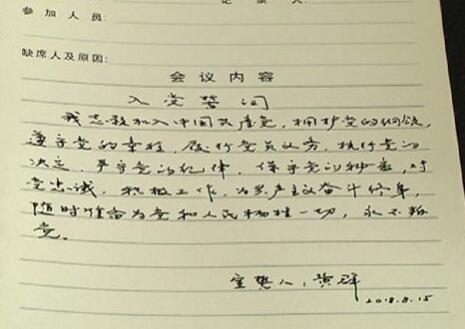 记录人:
参加人员:
缺席人及原因:
会议内容
入党誓词
我志愿加入中国共产党，拥护党的纲领，
遵守党的章程，履行党员义务，执行党的
决定，严守党的纪律，保守党的秘密，对
党忠诚，积极工作，为共产主义奋斗终身，
随时准备为党和人民牺牲一切，永不叛
党。
宣誓人：黄群
2018.8.15